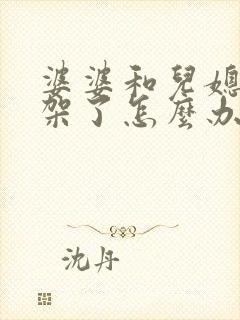 婆婆和兒媳
架了怎麼办
沈丹